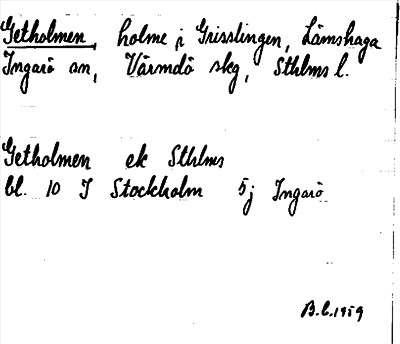 Getholmen, holme i Grisslingen, Lämshaga
Ingarö an, Värmdö skg, Sthlms l.
Getholmen ek Sthlms
bl. 10 I Stockholm 5j Ingarö
B.C. 1959